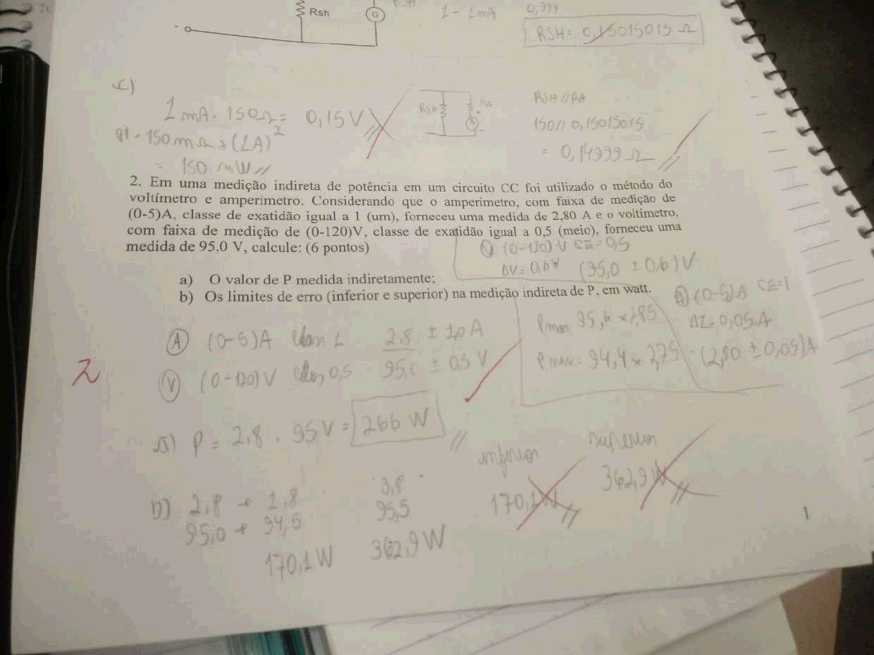 Rsh
G
1-1mA
0,999
RSH = 0,15015015 Ω
c)
1 mA . 150Ω = 0,15 V
RSH
RA
RSH // RA
150 // 0,15015015
= 0,14999 Ω
150 mΩ x (1A)²
= 150 mW
2. Em uma medição indireta de potência em um circuito CC foi utilizado o método do
voltímetro e amperímetro. Considerando que o amperímetro, com faixa de medição de
(0-5)A, classe de exatidão igual a 1 (um), forneceu uma medida de 2,80 A e o voltímetro,
com faixa de medição de (0-120)V, classe de exatidão igual a 0,5 (meio), forneceu uma
medida de 95,0 V, calcule: (6 pontos)
V (0-120) V CE=0,5
ΔV = 0,6V (95,0 ± 0,6) V
a) O valor de P medida indiretamente;
b) Os limites de erro (inferior e superior) na medição indireta de P, em watt.
A (0-5) A CE=1
ΔI = 0,05 A
(2,80 ± 0,05) A
95,6 x 2,85
94,4 x 2,75
A (0-5)A 2,8 ± 1,0 A
V (0-120) V 0,5 95,0 ± 0,5 V
2
a) P = 2,8 . 95 V = 266 W
inferior superior
170,1 W 362,9 W
b) 2,8 → 1,8 3,8
95,0 → 94,5 95,5
170,1 W 362,9 W
1